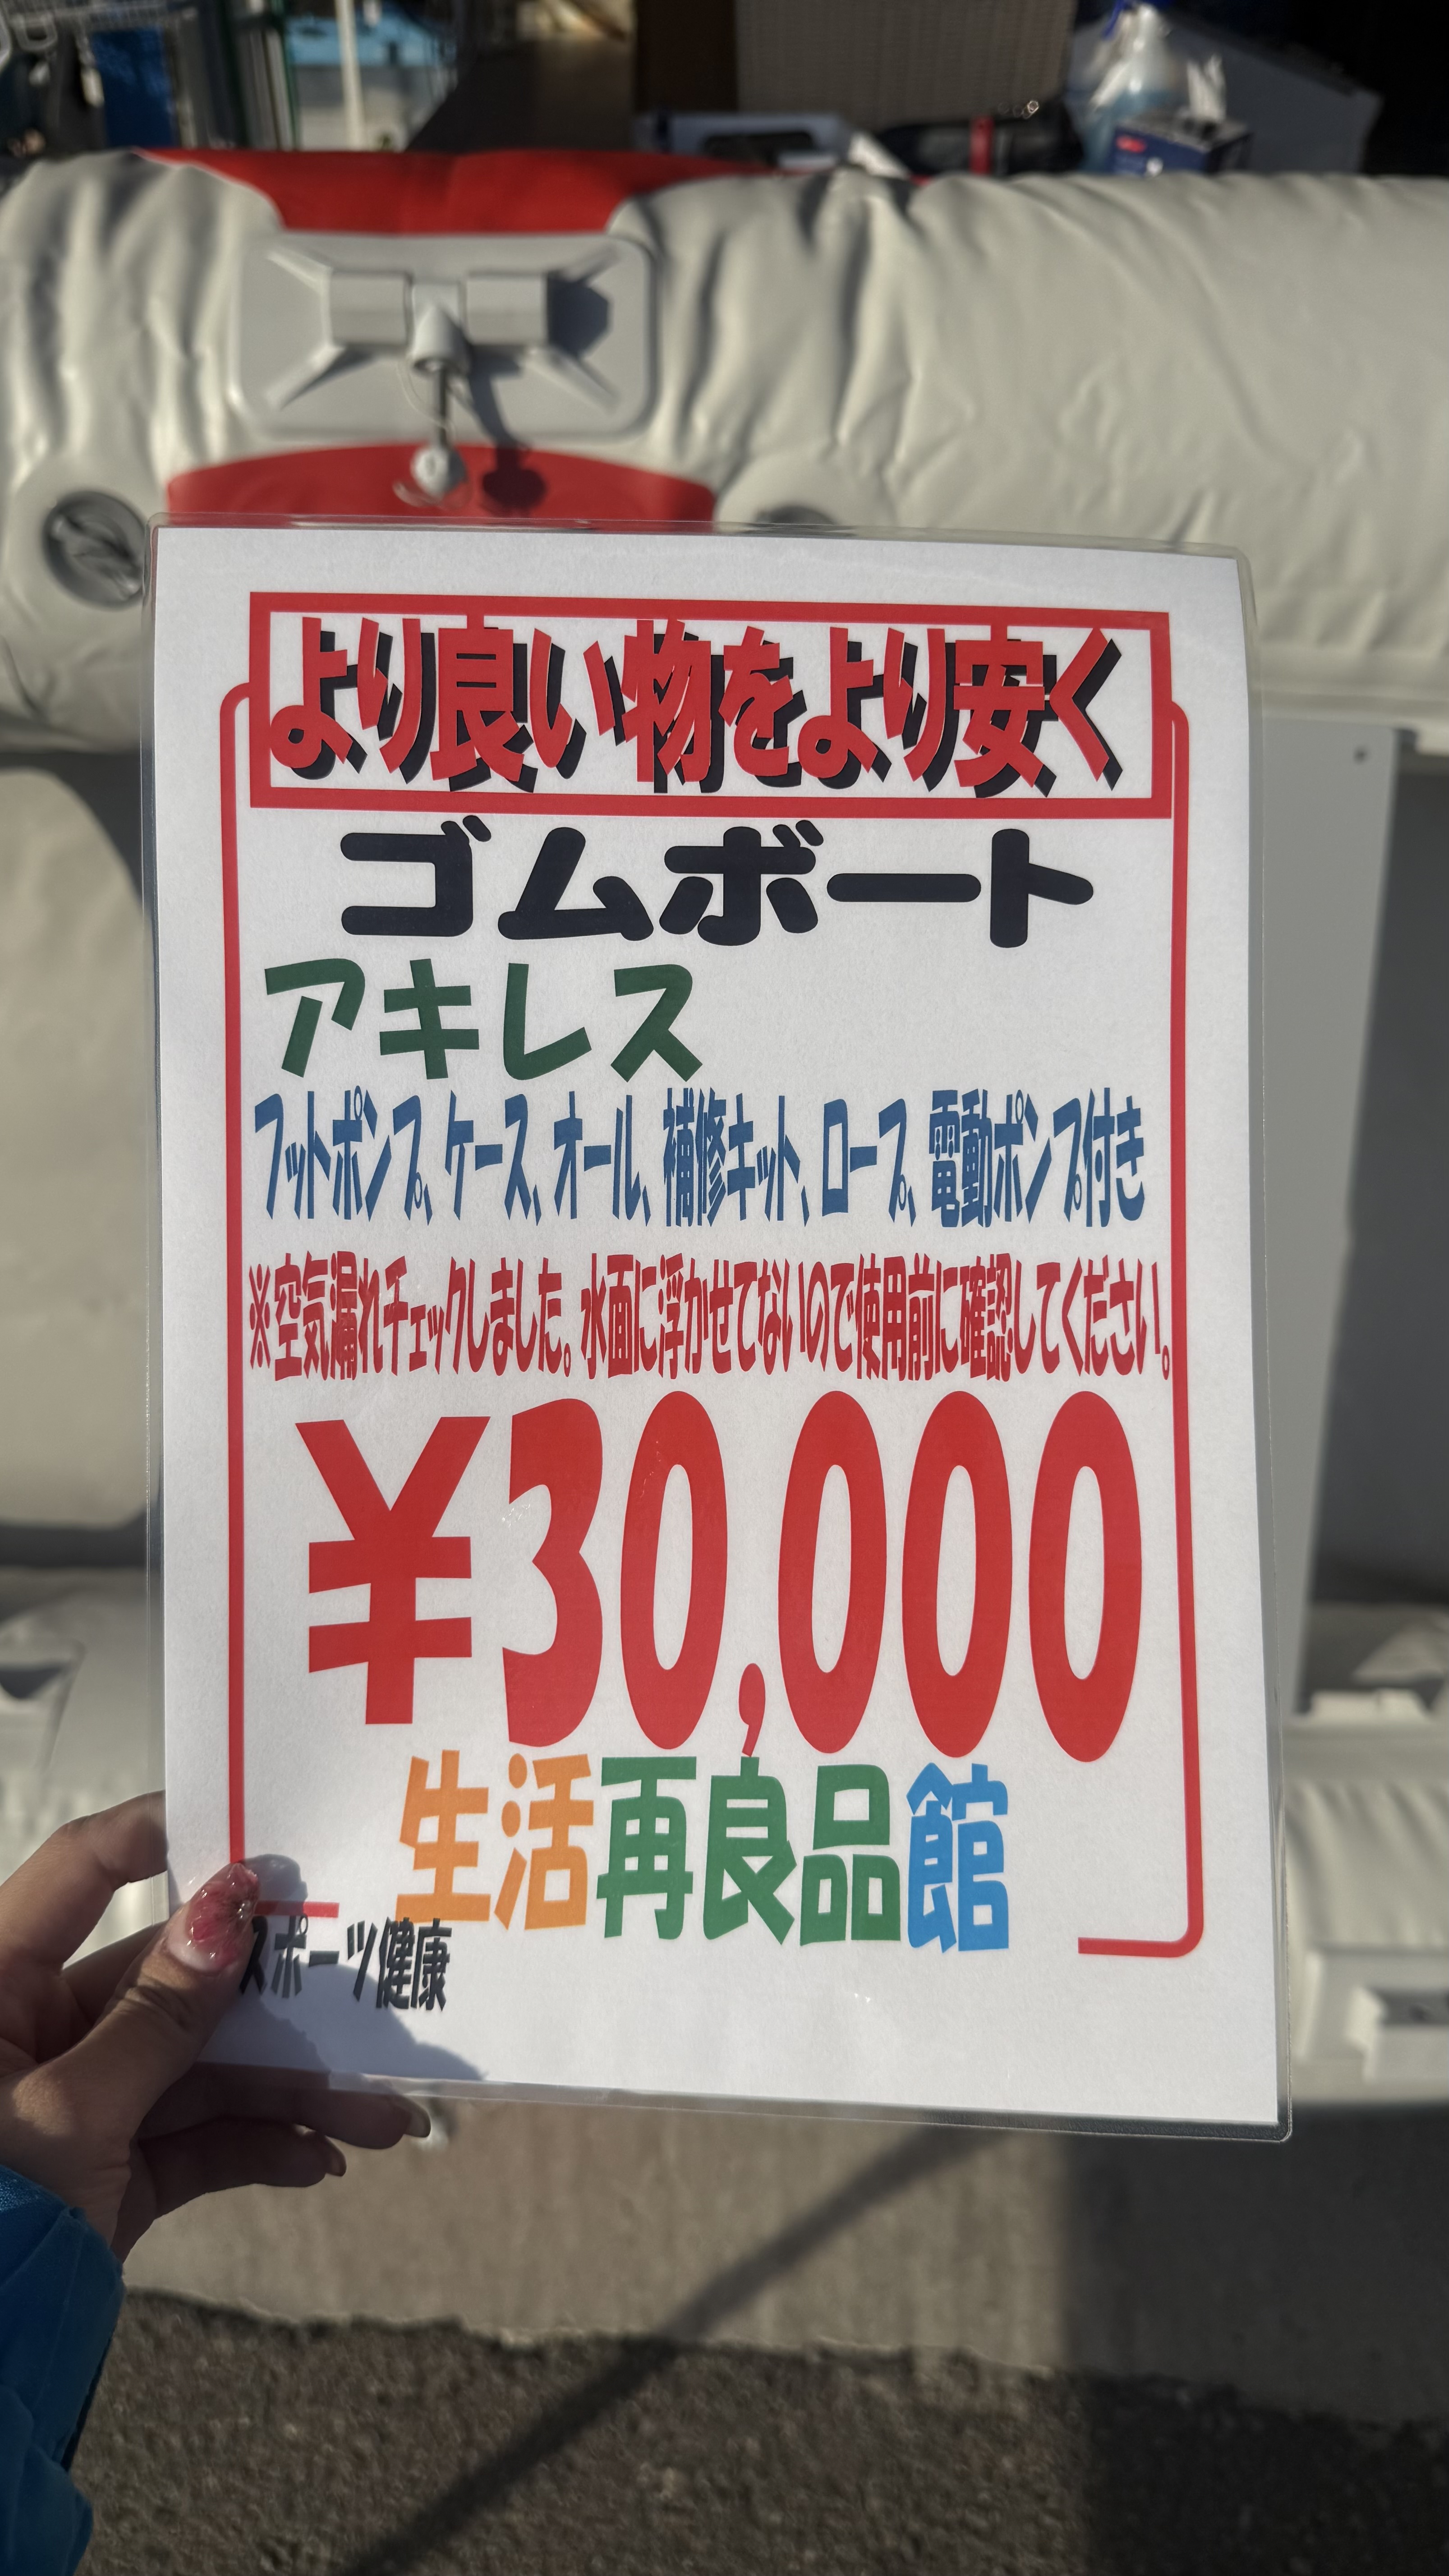 より良い物をより安く
ゴムボート
アキレス
フットポンプ、ケース、オール、補修キット、ロープ、電動ポンプ付き
※空気漏れチェックしました。水面に浮かせてないので使用前に確認してください。
¥30,000
生活再良品館
スポーツ健康